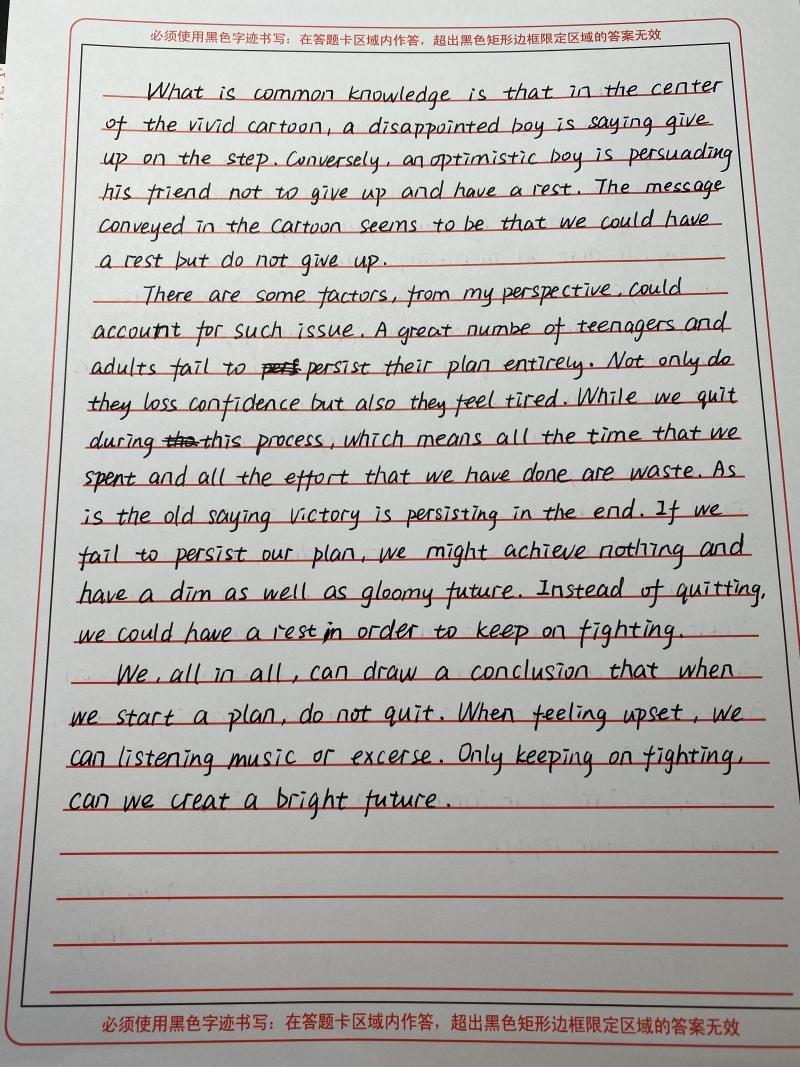 必须使用黑色字迹书写：在答题卡区域内作答，超出黑色矩形边框限定区域的答案无效
What is common knowledge is that in the center
of the vivid cartoon, a disappointed boy is saying give
up on the step. Conversely, an optimistic boy is persuading
his friend not to give up and have a rest. The message
conveyed in the cartoon seems to be that we could have
a rest but do not give up.
There are some factors, from my perspective, could
account for such issue. A great numbe of teenagers and
adults fail to pers persist their plan entirely. Not only do
they loss confidence but also they feel tired. While we quit
during the this process, which means all the time that we
spent and all the effort that we have done are waste. As
is the old saying victory is persisting in the end. If we
fail to persist our plan, we might achieve nothing and
have a dim as well as gloomy future. Instead of quitting,
we could have a rest in order to keep on fighting.
We, all in all, can draw a conclusion that when
we start a plan, do not quit. When feeling upset, we
can listening music or excerse. Only keeping on fighting,
can we creat a bright future.
必须使用黑色字迹书写：在答题卡区域内作答，超出黑色矩形边框限定区域的答案无效